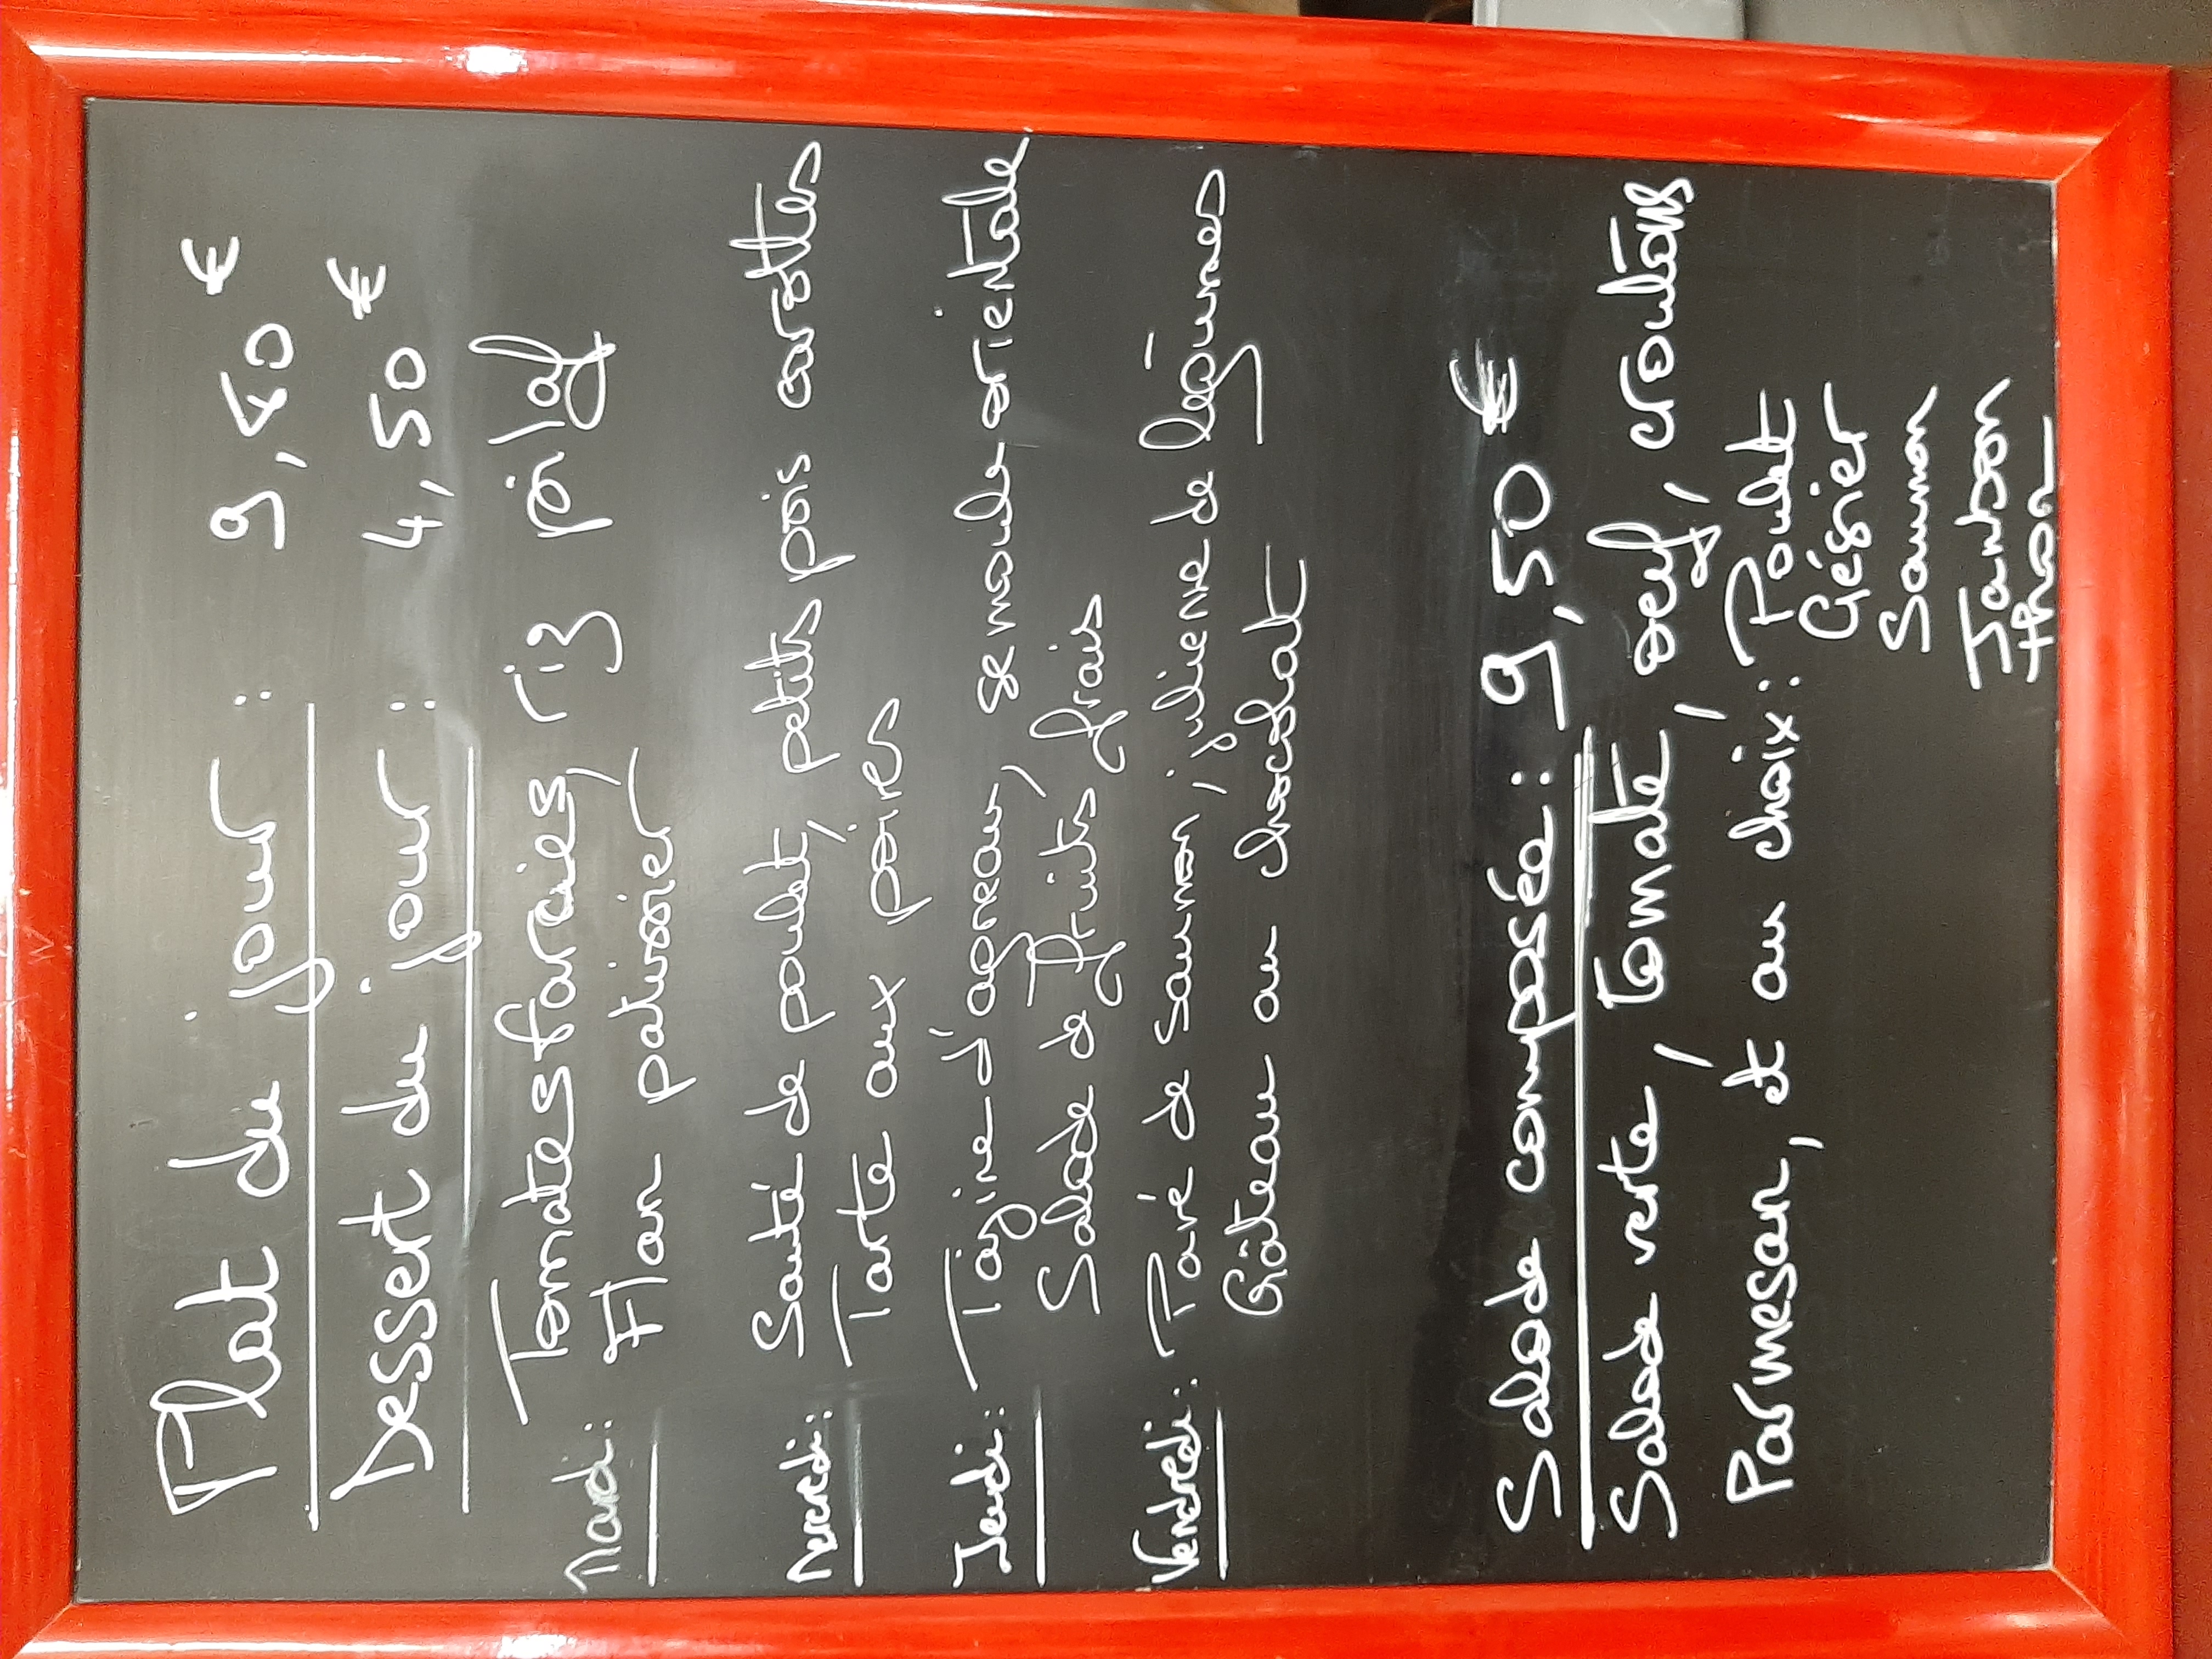 Plat du jour : 9,50 €
Dessert du jour : 4,50 €
Mardi : Tomates farcies, riz pilaf
Flan patissier
Mercredi : Sauté de poulet, petits pois carottes
Tarte aux poires
Jeudi : Tajine d'agneau, semoule orientale
Salade de fruits frais
Vendredi : Pavé de saumon, julienne de légumes
Gâteau au chocolat
Salade composée : 9,50 €
Salade verte, Tomate, oeuf, croutons
Parmesan, et au choix : Poulet
Gésier
Saumon
Jambon
thon